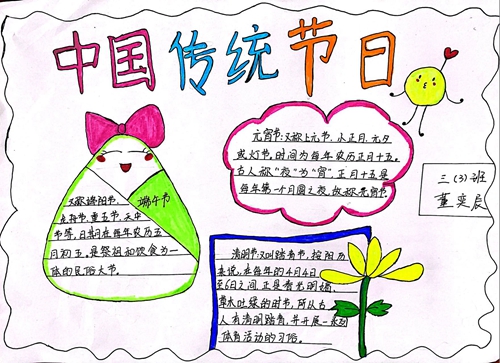 中国传统节日
元宵节:又称上元节、小正月、元夕
或灯节,时间为每年农历正月十五。
古人称“夜”为“宵”,正月十五是
每年第一个月圆之夜,故称元宵节。
三(3)班
董奕辰
端午节
又称端阳节、
龙舟节、重五节、天中
节等,日期在每年农历五
月初五,是祭祖和饮食为一
体的民俗大节。
清明节又叫踏青节,按阳历
来说,在每年的4月4日
至6日之间,正是春光明媚
草木吐绿的时节,所以古
人有清明踏青,并开展一系列
体育活动的习俗。